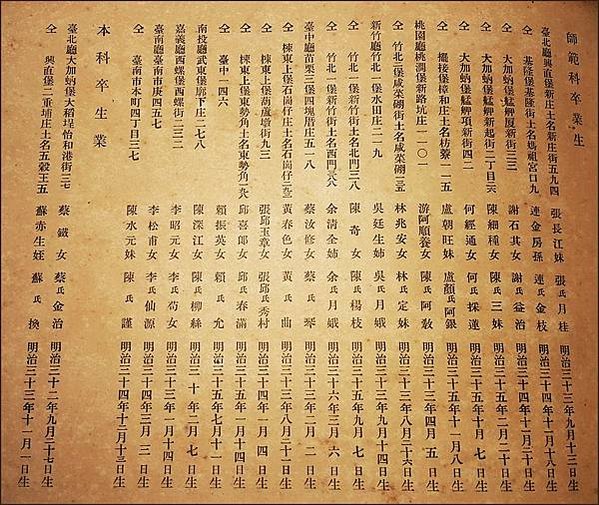 師範科卒業生
臺北廳興直堡新庄街五九四 張長江妹 張氏月桂 明治三十三年九月十三日生
仝 基隆堡基隆街土名媽祖宮口九 連金房孫 連氏金枝 明治三十四年十一月十八日生
仝 大加蚋堡艋舺厦新街三三 謝石其女 謝氏益治 明治三十四年十二月二十日生
仝 大加蚋堡艋舺新起街二丁目 陳細種女 陳氏三妹 明治三十五年二月二十日生
仝 大加蚋堡艋舺頂新街四二 何經通女 何氏採蓮 明治三十五年十月七日生
仝 擺接堡樟和庄土名枋藔一一五 盧朝旺妹 盧顏氏阿銀 明治三十五年十一月八日生
桃園廳桃澗堡新路坑庄一一〇一 游阿順養女 陳氏阿敎 明治三十三年四月五日生
仝 竹北二堡咸菜硼街土名咸菜硼 林兆安女 林氏定妹 明治三十三年八月二十六日生
新竹廳竹北一堡水田庄二一九 吳廷生姉 吳氏月娥 明治三十三年九月十四日生
仝 竹北一堡新竹街土名北門三八 陳奇女 陳氏楊枝 明治三十五年九月七日生
仝 竹北一堡新竹街土名西門 余清全姉 余氏月娥 明治三十六年三月六日生
臺中廳苗栗三堡四塊厝庄五一八 蔡汝修女 蔡氏琴 明治三十三年二月二日生
仝 棟東上堡石岡仔庄土名石岡仔 黃春色女 黃氏曲 明治三十三年八月二十一日生
仝 棟東上堡葫蘆墩街九三 張邱玉章女 張邱氏秀村 明治三十四年一月四日生
仝 棟東上堡東勢角庄土名東勢角 邱喜郎女 邱氏春滿 明治三十五年一月十四日生
仝 臺中一四六 賴振英女 賴氏允 明治三十五年七月十一日生
南投廳武東堡廍下庄二七八 陳深江女 陳氏柳絲 明治三十年一月七日生
嘉義廳西螺堡西螺街二三二 李昭元女 李氏苟 明治三十三年一月十四日生
臺南廳臺南市庚四五七 李松甫女 李氏仙源 明治三十四年三月一日生
仝 臺南市本町四丁目三七 陳水元妹 陳氏謹 明治三十四年十二月十三日生
本科卒業生
臺北廳大加蚋堡大稻埕怡和港街三七 蔡鐵女 蔡氏金治 明治三十二年九月二十七日生
仝 興直堡二重埔庄土名五穀王五 蘇赤生姪 蘇氏換 明治三十三年十一月一日生